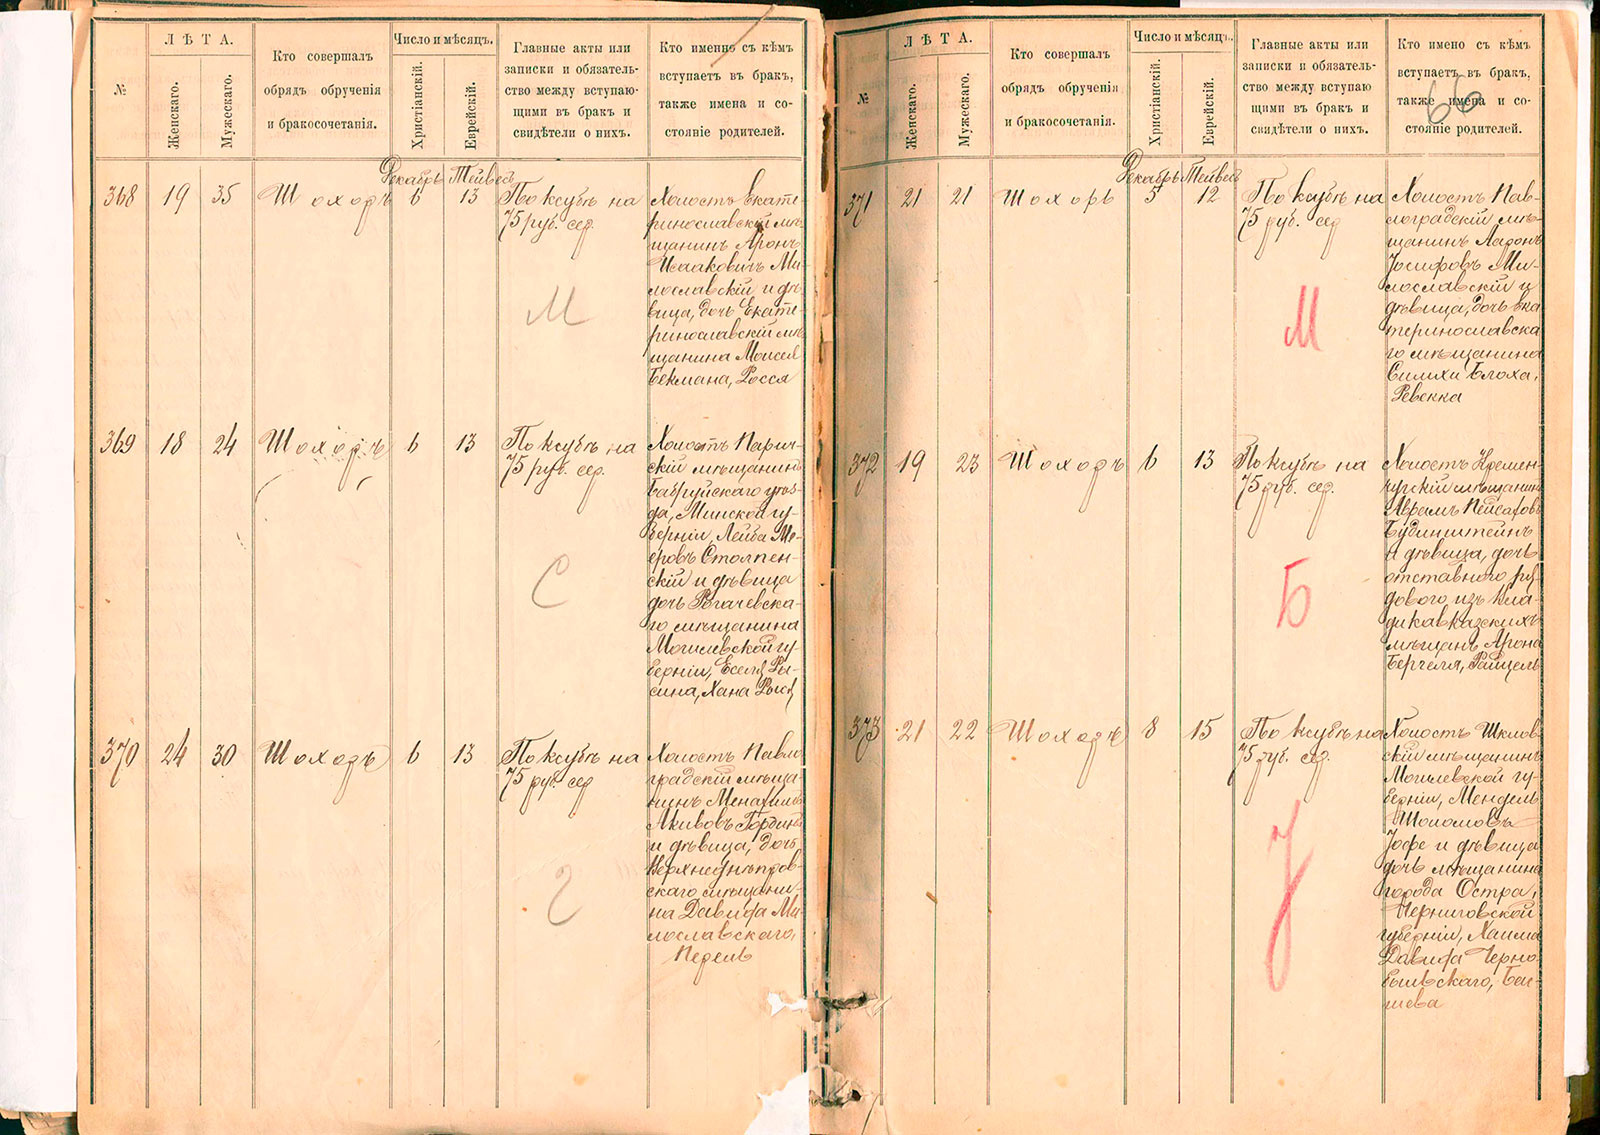 №
ЛѢТА.
Женскаго.
Мужескаго.
Кто совершалъ
обрядъ обрученія
и бракосочетанія.
Число и мѣсяцъ.
Христіанскій.
Еврейскій.
Главные акты или
записки и обязатель-
ство между вступаю-
щими въ бракъ и
свидѣтели о нихъ.
Кто именно съ кѣмъ
вступаетъ въ бракъ,
также имена и со-
стояніе родителей.
Декабрь Тейвесъ
368 19 35 Шохоръ 6 13
По ксубѣ на
75 руб. сер.
М
Холостъ Екате-
ринославскій мѣ-
щанинъ Аронъ
Исааковичъ Ми-
лославскій и дѣ-
вица, дочь Екате-
ринославскій мѣ-
щанина Моисея
Бекмана, Росся
369 18 24 Шохоръ 6 13
По ксубѣ на
75 руб. сер.
С
Холостъ Парич-
скій мѣщанинъ
Бабруйскаго уѣз-
да, Минской гу-
берніи, Лейба Ме-
еровъ Столпен-
скій и дѣвица
дочь Рогачевска-
го мѣщанина
Могилевской гу-
берніи, Еселя Ры-
сина, Хана
370 24 30 Шохоръ 6 13
По ксубѣ на
75 руб. сер
Г
Холостъ Павло
градскій мѣща-
нинъ
Акивовъ Гординъ
и дѣвица, дочь
Верхнеднѣпров-
скаго мѣщани-
на Давида Ми-
лославскаго,
Перель
№
ЛѢТА.
Женскаго.
Мужескаго.
Кто совершалъ
обрядъ обрученія
и бракосочетанія.
Число и мѣсяцъ.
Христіанскій.
Еврейскій.
Главные акты или
записки и обязатель-
ство между вступаю
щими въ бракъ и
свидѣтели о нихъ.
Кто имено съ кѣмъ
вступаетъ въ бракъ,
также имена и со-
стояніе родителей.
66
Декабрь Тейвесъ
371 21 21 Шохоръ 5 12
По ксубѣ на
75 руб. сер
М
Холостъ Пав-
лоградскій мѣ-
щанинъ Ааронъ
Іосифовъ Ми-
лославскій и
дѣвица, дочь Ека
теринославска
го мѣщанина
Симхи Блоха,
Ревекка
372 19 23 Шохоръ 6 13
По ксубѣ на
75 руб. сер.
Б
Холостъ Кремен-
чугскій мѣщанинъ
Аврамъ Пейсаховъ
Будинштейнъ
и дѣвица, дочь
отставного ря-
дового изъ Вла-
дикавказскихъ
мѣщанъ Арона
Бергеля, Райцель
373 21 22 Шохоръ 8 15
По ксубѣ на
75 руб. сер.
J
Холостъ Шклов-
скій мѣщанинъ
Могилевской гу-
берніи, Мендель
Шоломовъ
Іофе и дѣвица
дочь мѣщанина
города Остра,
Черниговской
губерніи, Хаима
Давида Черно-
быльскаго, Бат-
шева